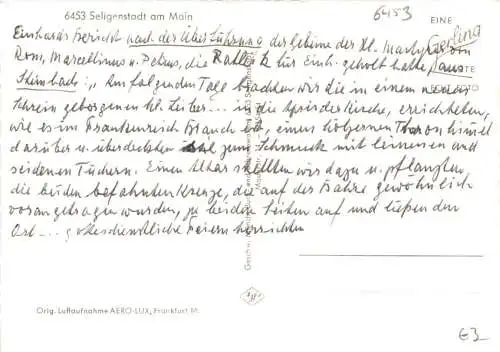 6453 Seligenstadt am Main
6453
EINE
Einhards Bericht nach der Überführung der Gebeine der Hl. Martyrer von
Rom, Marcellinus u. Petrus, die Ratleik für Einh. geholt hatte, aus
Steinbach: "Am folgenden Tage brachten wir die in einem neuen
Schrein geborgenen hl. Leiber... in die Apsis der Kirche, errichteten,
wie es im Frankenreich Brauch ist, einen hölzernen Thronhimmel
darüber u. überdeckten zum Schmuck mit leinenen und
seidenen Tüchern. Einen Altar stellten wir dazu u. pflanzten
die beiden befahnten Kreuze, die auf der Bahre gewöhnlich
vorangetragen wurden, zu beiden Seiten auf und ließen den
Ort... gottesdienstliche Feiern herrichten
Orig. Luftaufnahme AERO-LUX, Frankfurt M.
€3